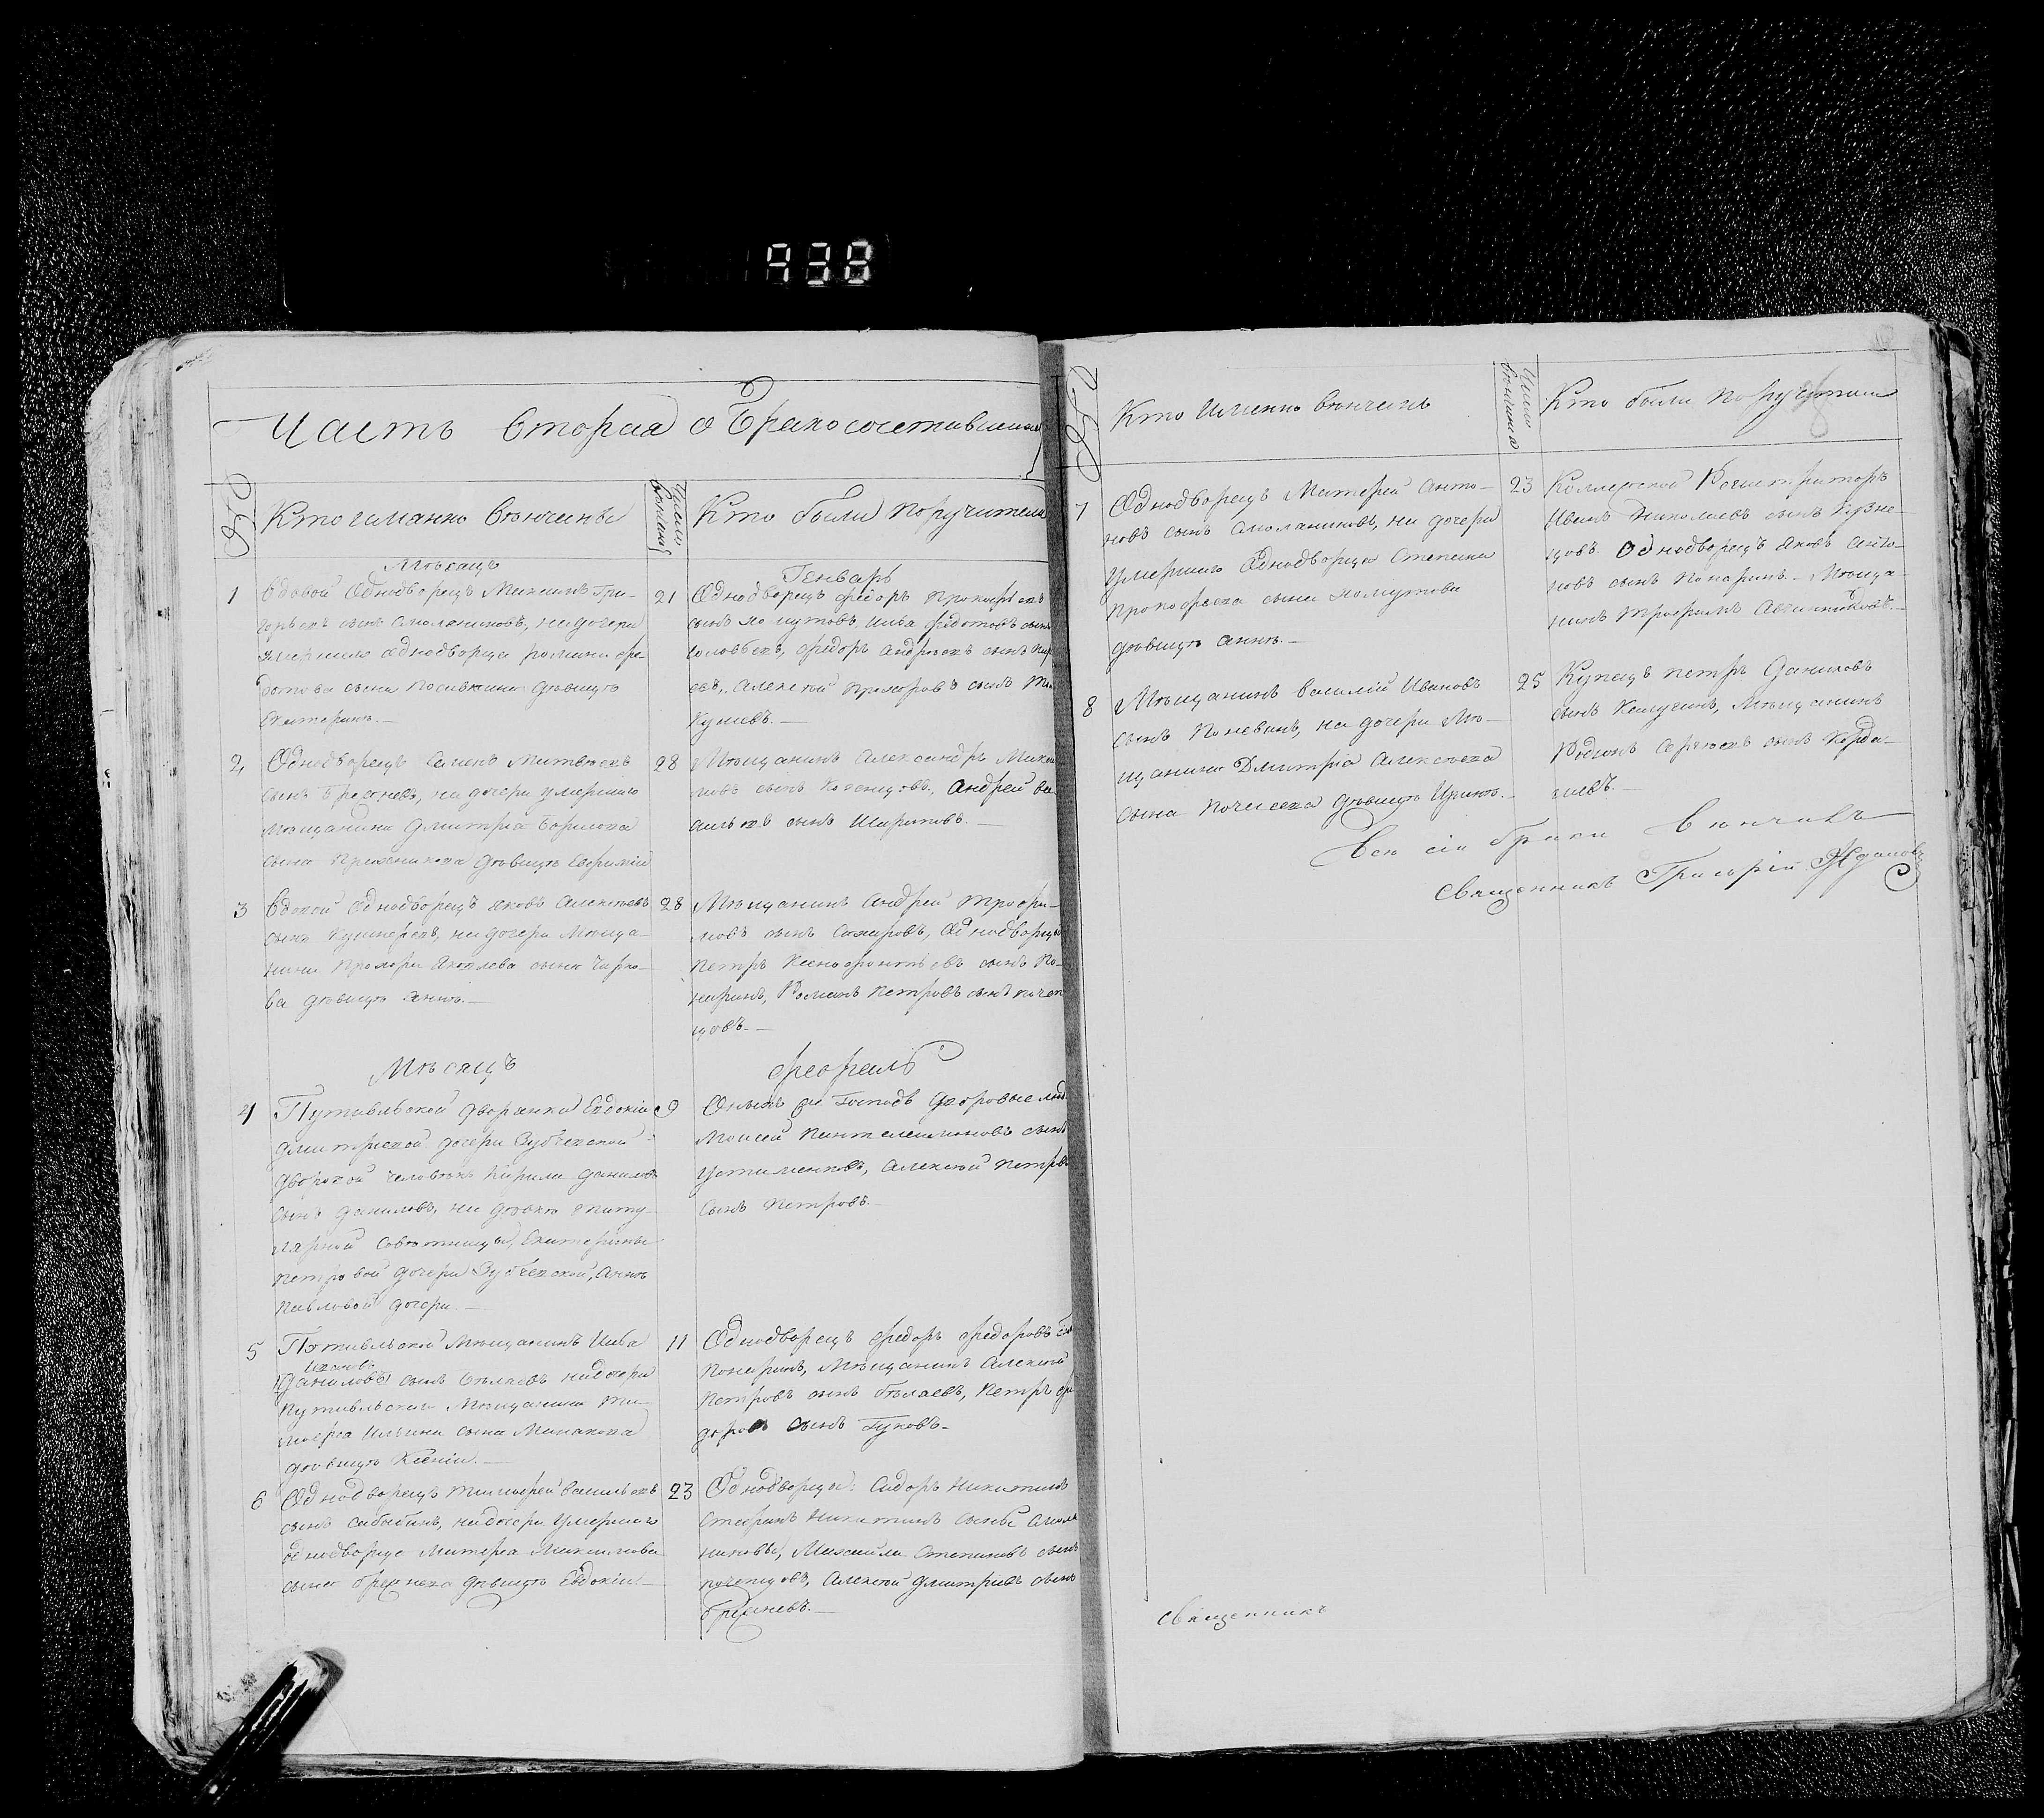 938
Часть вторая о Бракосочетавшихся
№ Кто именно венчаны Число венчания Кто были поручители
Месяцъ Генварь
1 Вдовой Однодворецъ Михаилъ Гри-
горьевъ сынъ Смоляниковъ, на дочери
умершаго однодворца романа фе-
дотова сына девицѣ
Екатеринѣ.—
21 Однодворецъ федоръ Прокофьевъ
сынъ Хомутовъ, Илья федотовъ сынъ
Соловьевъ, федоръ Андреевъ сынъ
евъ, Алексей Прохоровъ сынъ
куневъ.—
2 Однодворецъ Семенъ Матвѣевъ
сынъ Брежневъ, на дочери умершаго
мещанина Дмитрія Борисова
сына девицѣ Евфиміи
28 Мѣщанинъ Александръ
сынъ Андрей Ва-
сильевъ сынъ Шараповъ.—
3 Вдовой Однодворецъ Яковъ Алексеевъ
сынъ Кушнеревъ, на дочери Мѣща-
нина Прохора Яковлева сына Чарко-
ва девицѣ Аннѣ.—
28 Мѣщанинъ Андрей Трофи-
мовъ сынъ Сахаровъ, Однодворцы
Петръ Ксенофонтьевъ сынъ По-
наринъ, Романъ Петровъ сынъ Почеп-
цовъ.—
Мѣсяцъ февраль
4 Путивльской дворянки Евдокіи
дмитріевой дочери Зубчевской
дворовой человѣкъ Кирила Даниловъ
сынъ Даниловъ, на девкѣ титу-
лярной Советницы, Екатерины
Петровой дочери Зубчевской, Аннѣ
Павловой дочери.—
9 Оныхъ же Господъ дворовые люди
Моисей Пантелеимоновъ сынъ
Устименковъ, Алексей Петровъ
сынъ Петровъ.—
5 Путивльской Мѣщанинъ Илья
Ивановъ
Даниловъ сынъ Беляевъ на дочери
Путивльскаго Мещанина Ти-
мофея Ильина сына Минакова
девицѣ Ксеніи.—
11 Однодворецъ федоръ федоровъ сынъ
Понаринъ, Мѣщанинъ Алексей
Петровъ сынъ Беляевъ, Петръ фе-
доровъ сынъ Гуковъ.—
6 Однодворецъ Тимофей Васильевъ
сынъ Сабынинъ, на дочери умершаго
однодворца Матфея Михаилова
сына брежнева девицѣ Евдокіи.—
23 Однодворцы: Сидоръ Никитинъ
Стефанъ Никитинъ сыны Смоля-
никовы, Михаила Степановъ сынъ
почепцовъ, Алексей Дмитріевъ сынъ
брежневъ.—
№ Кто именно венчанъ Число венчания Кто были поручители
7 Однодворецъ Матфей Анто-
новъ сынъ Смоляниковъ, на дочери
умершаго Однодворца Степана
Прокофьева сына Хомутова
девицѣ Аннѣ.—
23 Коллежской Регистраторъ
Иванъ Николаевъ сынъ Кузне-
цовъ. Однодворецъ Яковъ Анто-
новъ сынъ Понаринъ.— Мѣща-
нинъ Трофимъ
8 Мѣщанинъ Василій Ивановъ
сынъ Поневинъ, на дочери Мѣ-
щанина Дмитрія Алексеева
сына девицѣ Иринѣ.—
25 Купецъ Петръ Даниловъ
сынъ Калугинъ, Мѣщанинъ
Родіонъ Сергѣевъ сынъ

Всѣ сіи браки Венчалъ
Священникъ Григорій Ждановъ
Священникъ